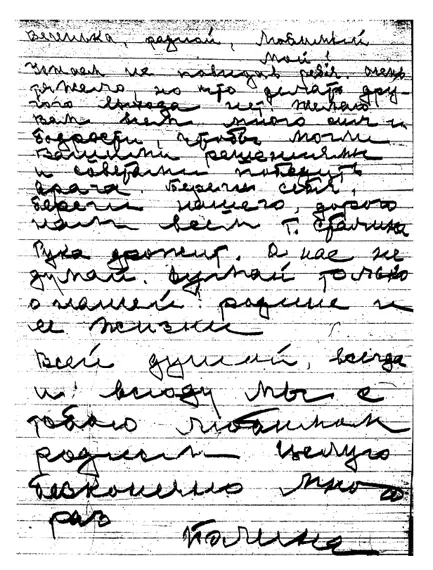 Веченька, родной, любимый
мой!
Уезжаем не повидав тебя. очень
тяжело, но что делать дру-
гого выхода нет. желаю
вам всем много сил и
бодрости, чтобы могли
вашими решениями
и советами победить
врага. береги себя,
береги нашего дорого
нам всем т. Сталина
Рука дрожит. О нас не
думай. Думай только
о нашей родине и
ее жизни
Всей душой, всегда
и всюду мы с
тобою любимым
родным целую
бесконечно много
раз
Полина